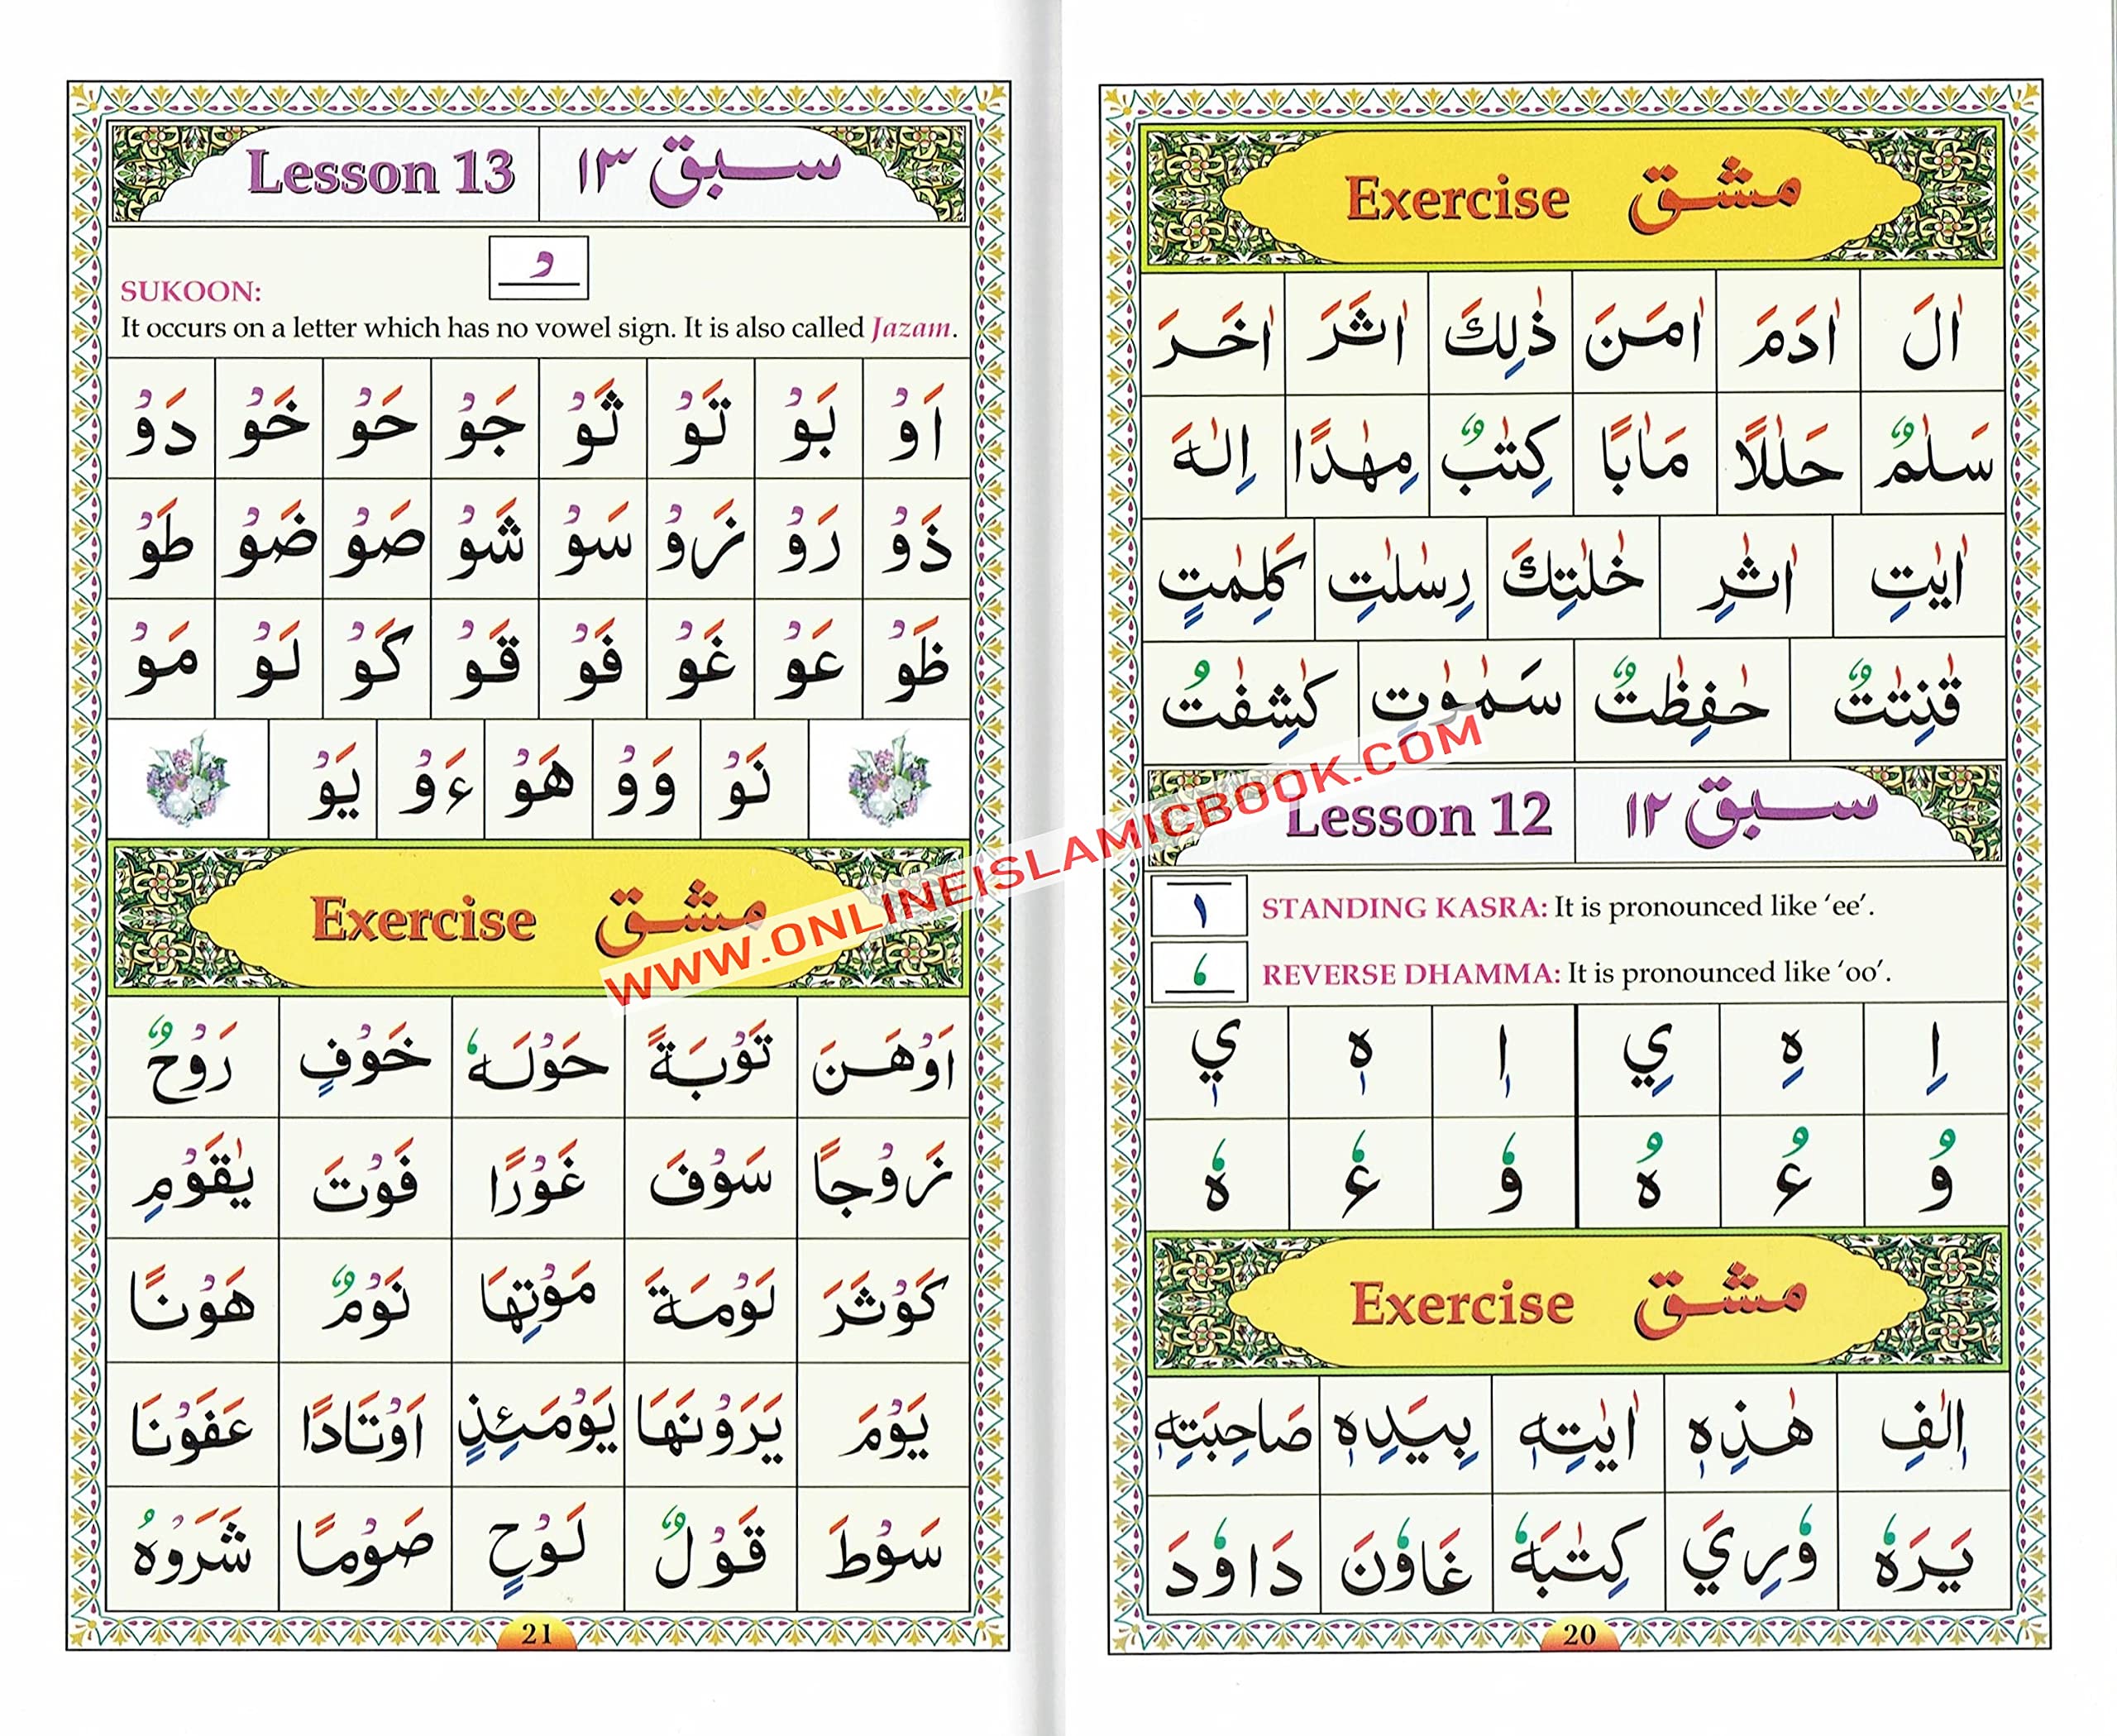 Exercise مشق
اٰلَ اٰدَمَ اٰمَنَ ذٰلِكَ اٰثَرَ اٰخَرَ
سَلٰمٌ حَلٰلًا مَاٰبًا كِتٰبٌ مِهٰدًا اِلٰهَ
اٰيٰتِ اٰثٰرِ خٰلٰتِكَ رِسٰلٰتِ كَلِمٰتٍ
قٰنِتٰتٌ حٰفِظٰتٌ سَمٰوٰتِ كٰشِفٰتُ
Lesson 12 سبق ۱۲
STANDING KASRA: It is pronounced like ‘ee’.
REVERSE DHAMMA: It is pronounced like ‘oo’.
اِ هِ يِ اٖ هٖ يٖ
وُ ءُ هُ وٗ ءٗ هٗ
Exercise مشق
اٖلٰفِ هٰذِهٖ اٰيٰتِهٖ بِيَدِهٖ صَاحِبَتِهٖ
يَرَهٗ وٗرِيَ كِتٰبَهٗ غَاوٗنَ دَاوٗدَ
20
Lesson 13 سبق ۱۳
SUKOON:
It occurs on a letter which has no vowel sign. It is also called Jazam.
اَوْ بَوْ تَوْ ثَوْ جَوْ حَوْ خَوْ دَوْ
ذَوْ رَوْ زَوْ سَوْ شَوْ صَوْ ضَوْ طَوْ
ظَوْ عَوْ غَوْ فَوْ قَوْ كَوْ لَوْ مَوْ
نَوْ وَوْ هَوْ ءَوْ يَوْ
Exercise مشق
اَوْهَنَ تَوْبَةً حَوْلَهٗ خَوْفٍ رَوْحٌ
زَوْجاً سَوْفَ غَوْرًا فَوْتَ يٰقَوْمِ
كَوْثَرَ لَوْمَةَ مَوْتِهَا نَوْمٌ هَوْنًا
يَوْمَ يَرَوْنَهَا يَوْمَئِذٍ اَوْتَادًا عَفَوْنَا
سَوْطَ قَوْلٌ لَوْحٍ صَوْمًا شَرَوْهُ
21
WWW.ONLINEISLAMICBOOK.COM